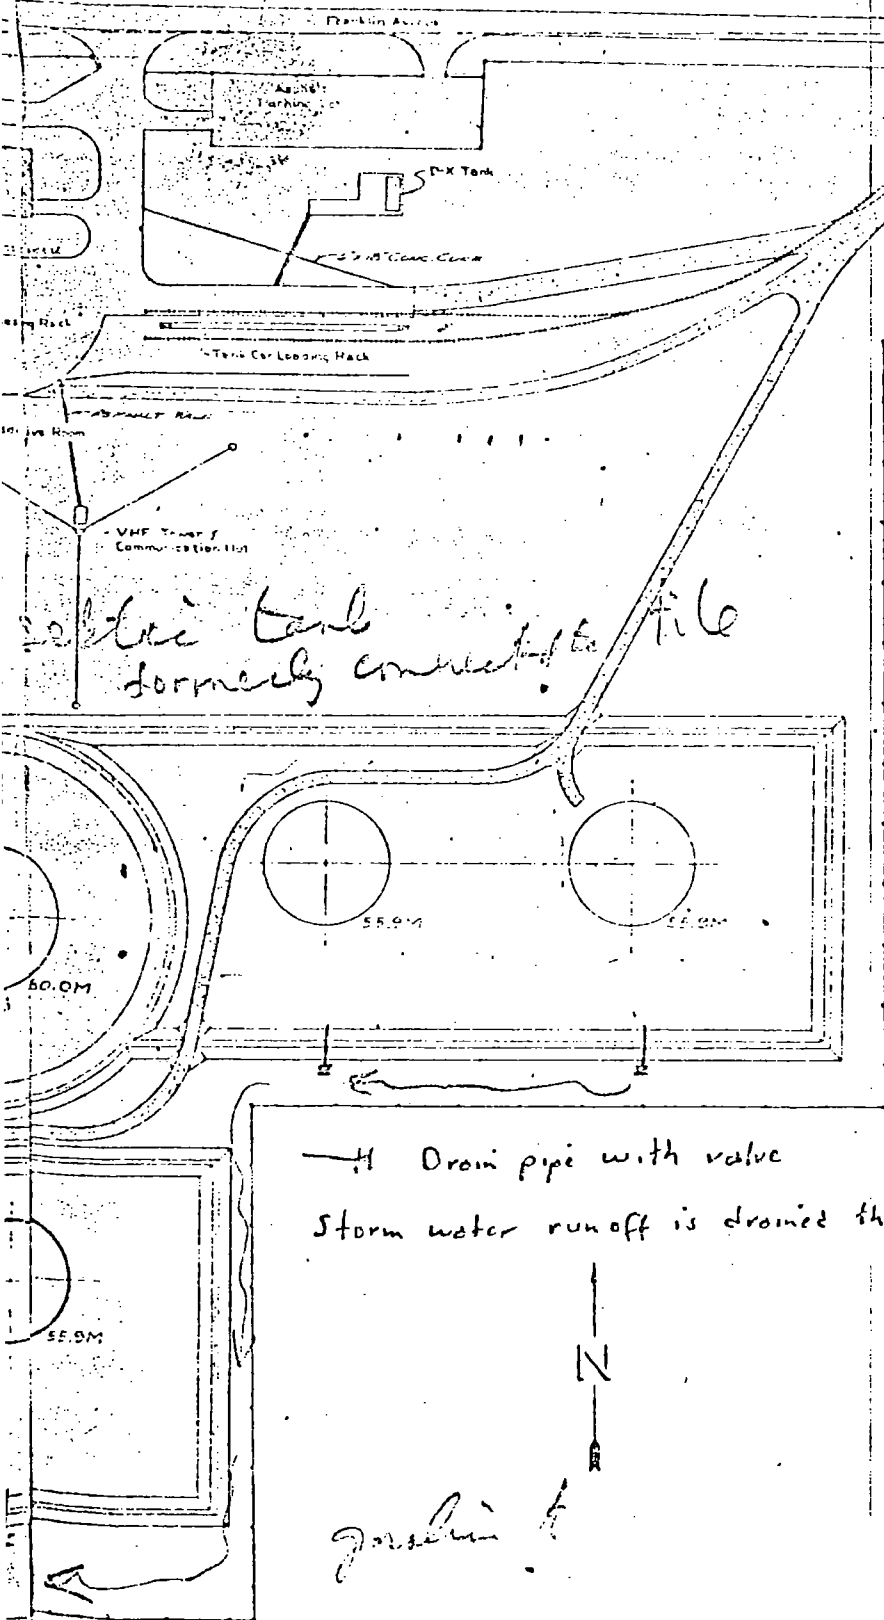 Franklin Avenue
Asphalt
Parking Lot
D-X Tank
Rack
Tank Car Loading Rack
ASPHALT
Room
VHF Tower &
Communication Hut
tank
formerly connected to tile
55.9M
55.9M
60.0M
Drain pipe with valve
Storm water runoff is drained th
N
55.9M